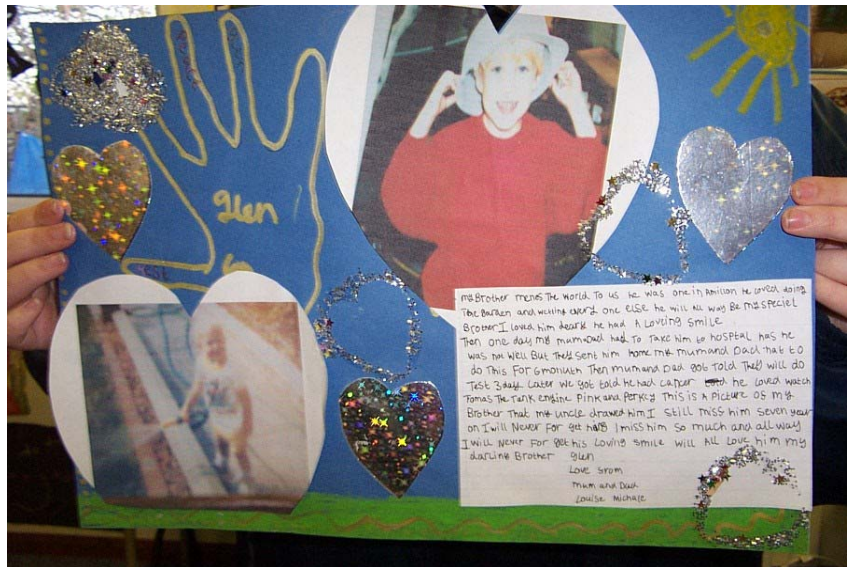 glen
my Brother menes The World To us he was one in Amilion he loved doing
The Garden and wclling every one else he will all way Be my speciel
Brother I loved him dearle he had A Loveing smile
Then one day my mum+Dad had To Take him to hosptal has he
was not Well But They sent him home my mum and Dad hat to
do This For 6monuth Then mum and Dad got Told They will do
Test 3 days Later We got told he had cancer he loved watch
Tomas The Tank engine Pink and Perky This is A Picture of my
Brother That my uncle drawed him I still miss him seven year
on I will Never For get him I miss him so much and all way
I will Never For get his Loving smile will All Love him my
darling Brother glen
Love from
mum and Dad
Louise Michale